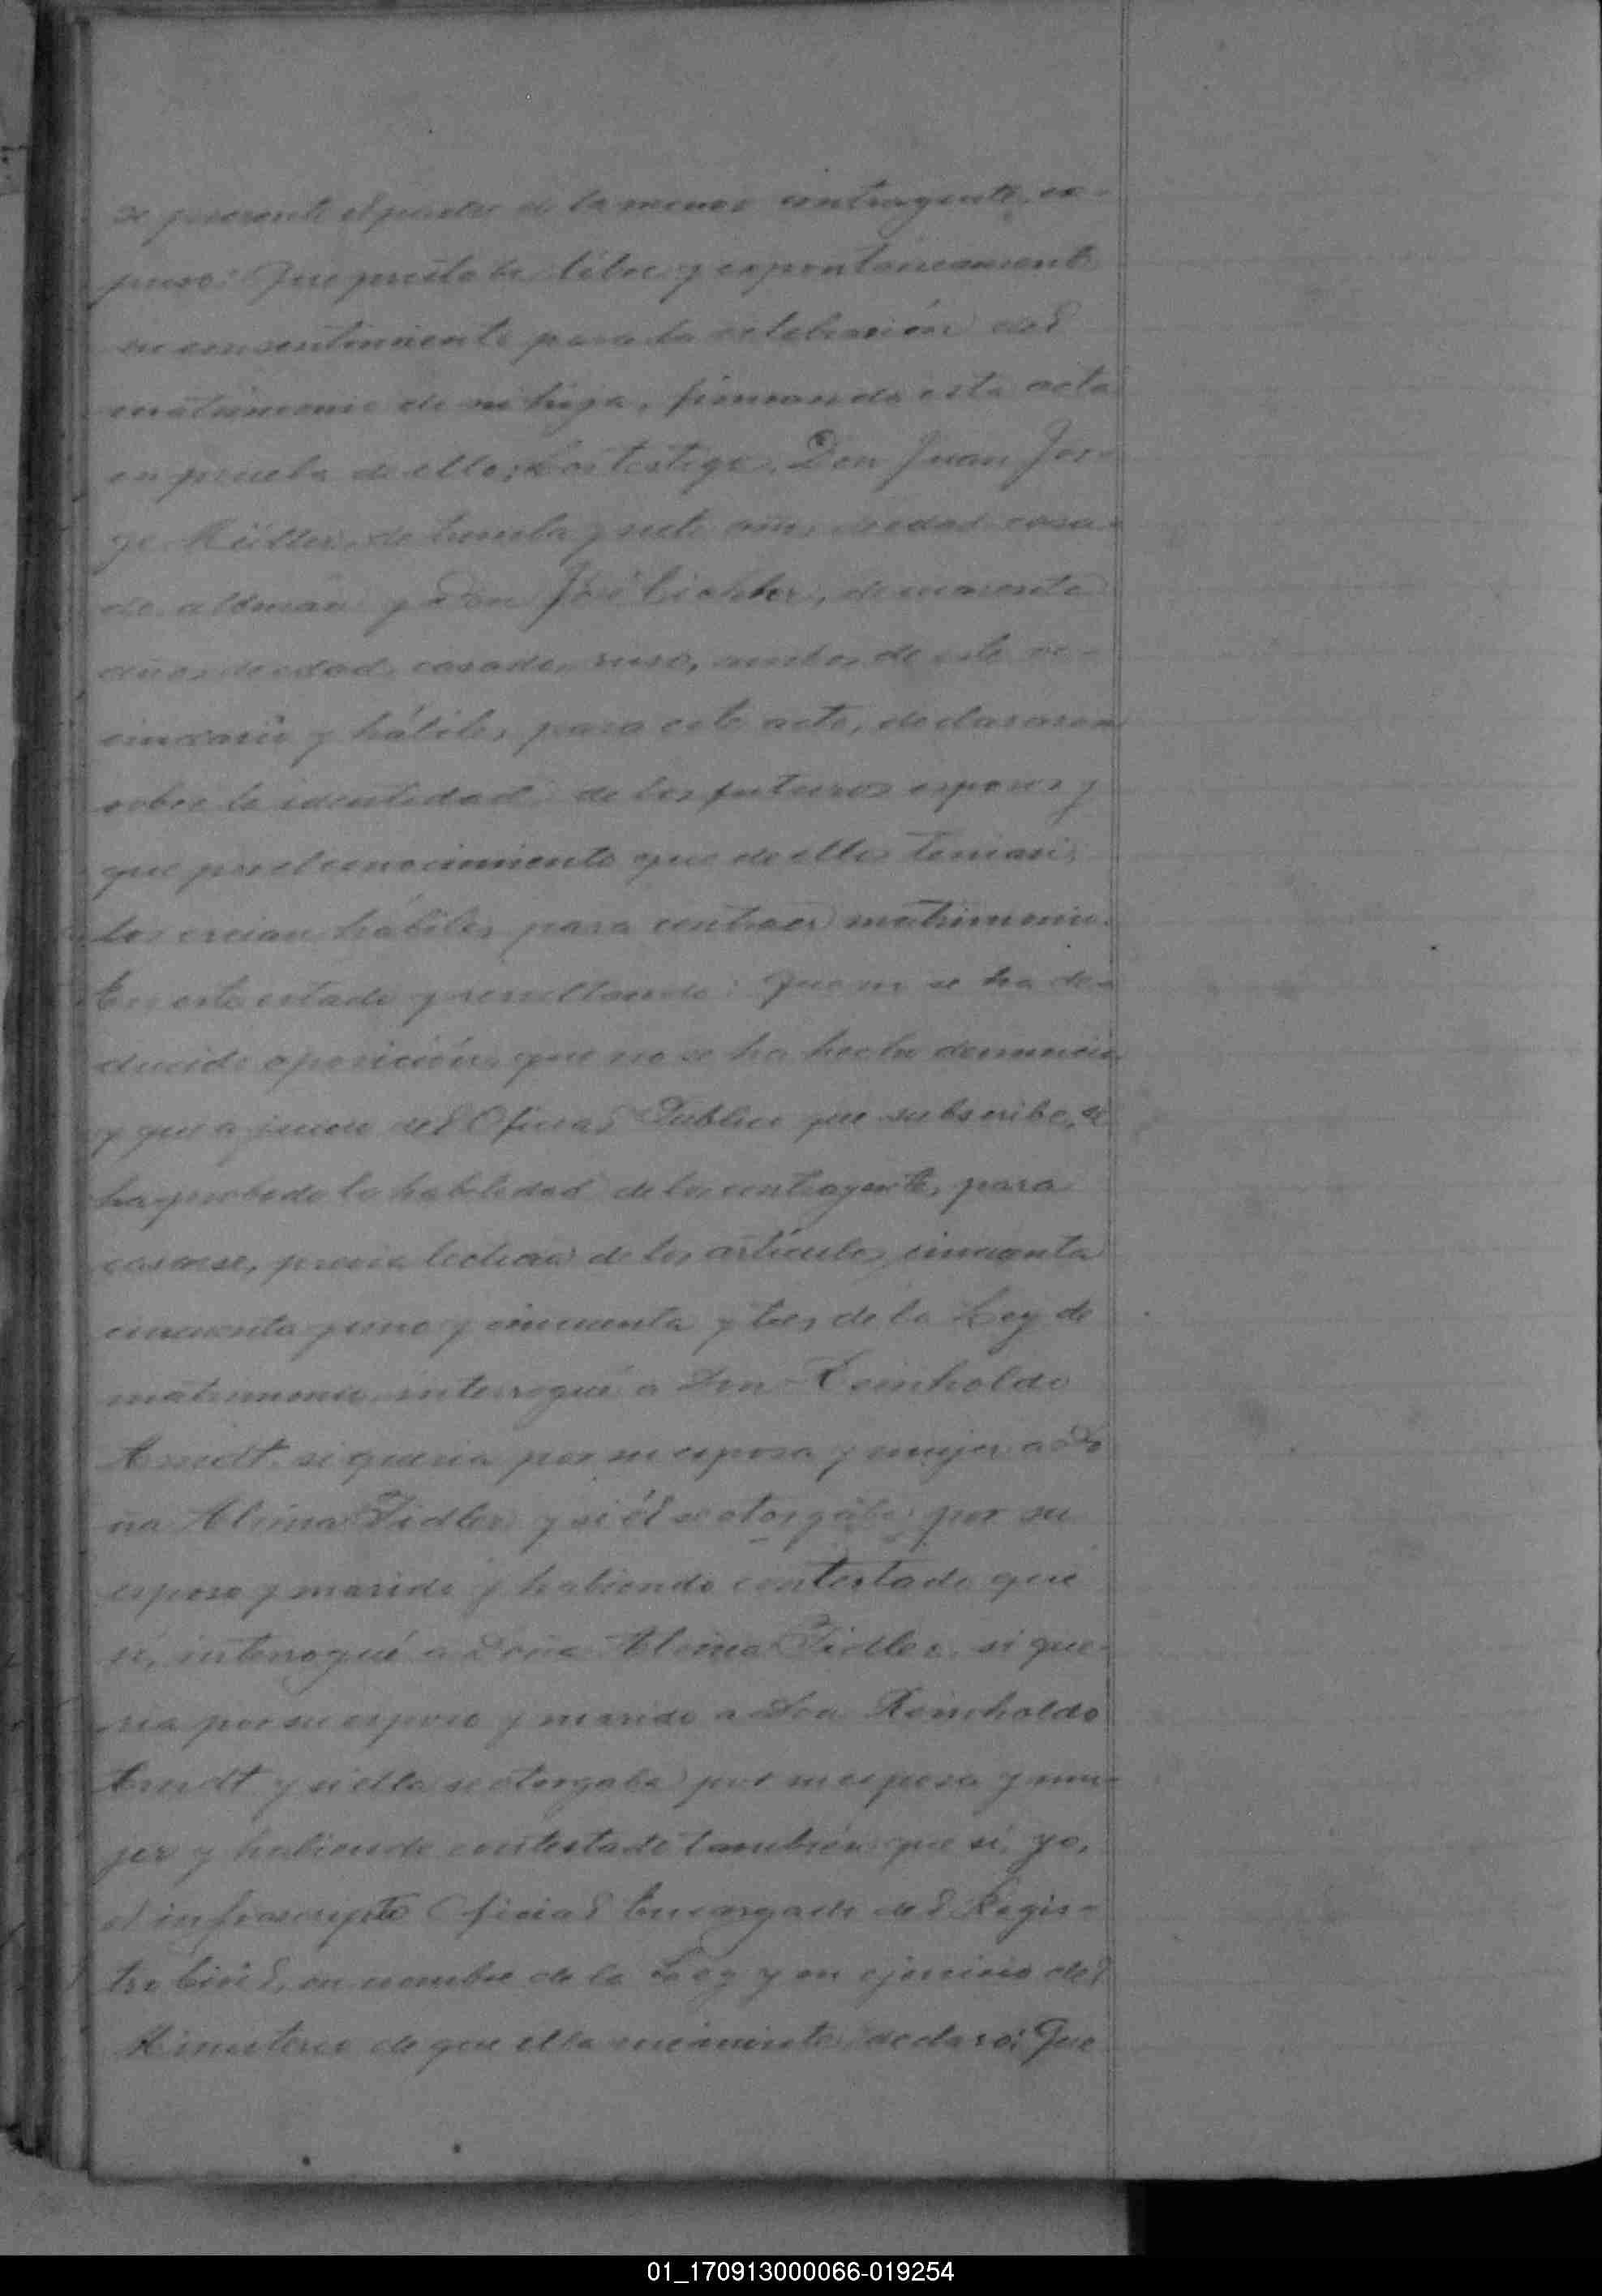 se presente el padre de la menor contrayente, ex-
puso: Que presta de libre y expontáneamente
su consentimiento para la celebración del
matrimonio de su hija, firmando esta acta
en prueba de ello; Los testigos, Don Juan Jor-
ge Müller, de treinta y siete años de edad casa-
do, alemán y a Don José, de cuarenta
años de edad, casado, ruso, ambos de este ve-
cindario y hábiles para este acto, declararon
sobre la identidad de los futuros esposos y
que por el conocimiento que de ellos tenian,
los creian hábiles para contraer matrimonio.
En este estado y resultando: Que no se ha de-
ducido oposición, que no se ha hecho denuncia
y que a juicio del Oficial Público que subscribe, se
ha probado la habilidad de los contrayentes, para
casarse, previa lectura de los artículos, cincuenta
cincuenta y uno y cincuenta y tres, de la Ley de
matrimonio, interrogué a Don Reinholdo
Arndt, si queria por su esposa y mujer a Do
ña Alvina Fidler y si él se otorgaba por su
esposo y marido y habiendo contestado que
si, interrogué a Doña Alvina Fidler, si que-
ria por su esposo y marido a Don Reinholdo
Arndt y si ella se otorgaba por su esposa y mu-
jer y habiendo contestado también que si, yo,
el infrascripto Oficial Encargado del Regis-
tro Civil, en nombre de la Ley y en ejercicio del
Ministerio de que ella me inviste, declaro: Que
01_170913000066-019254